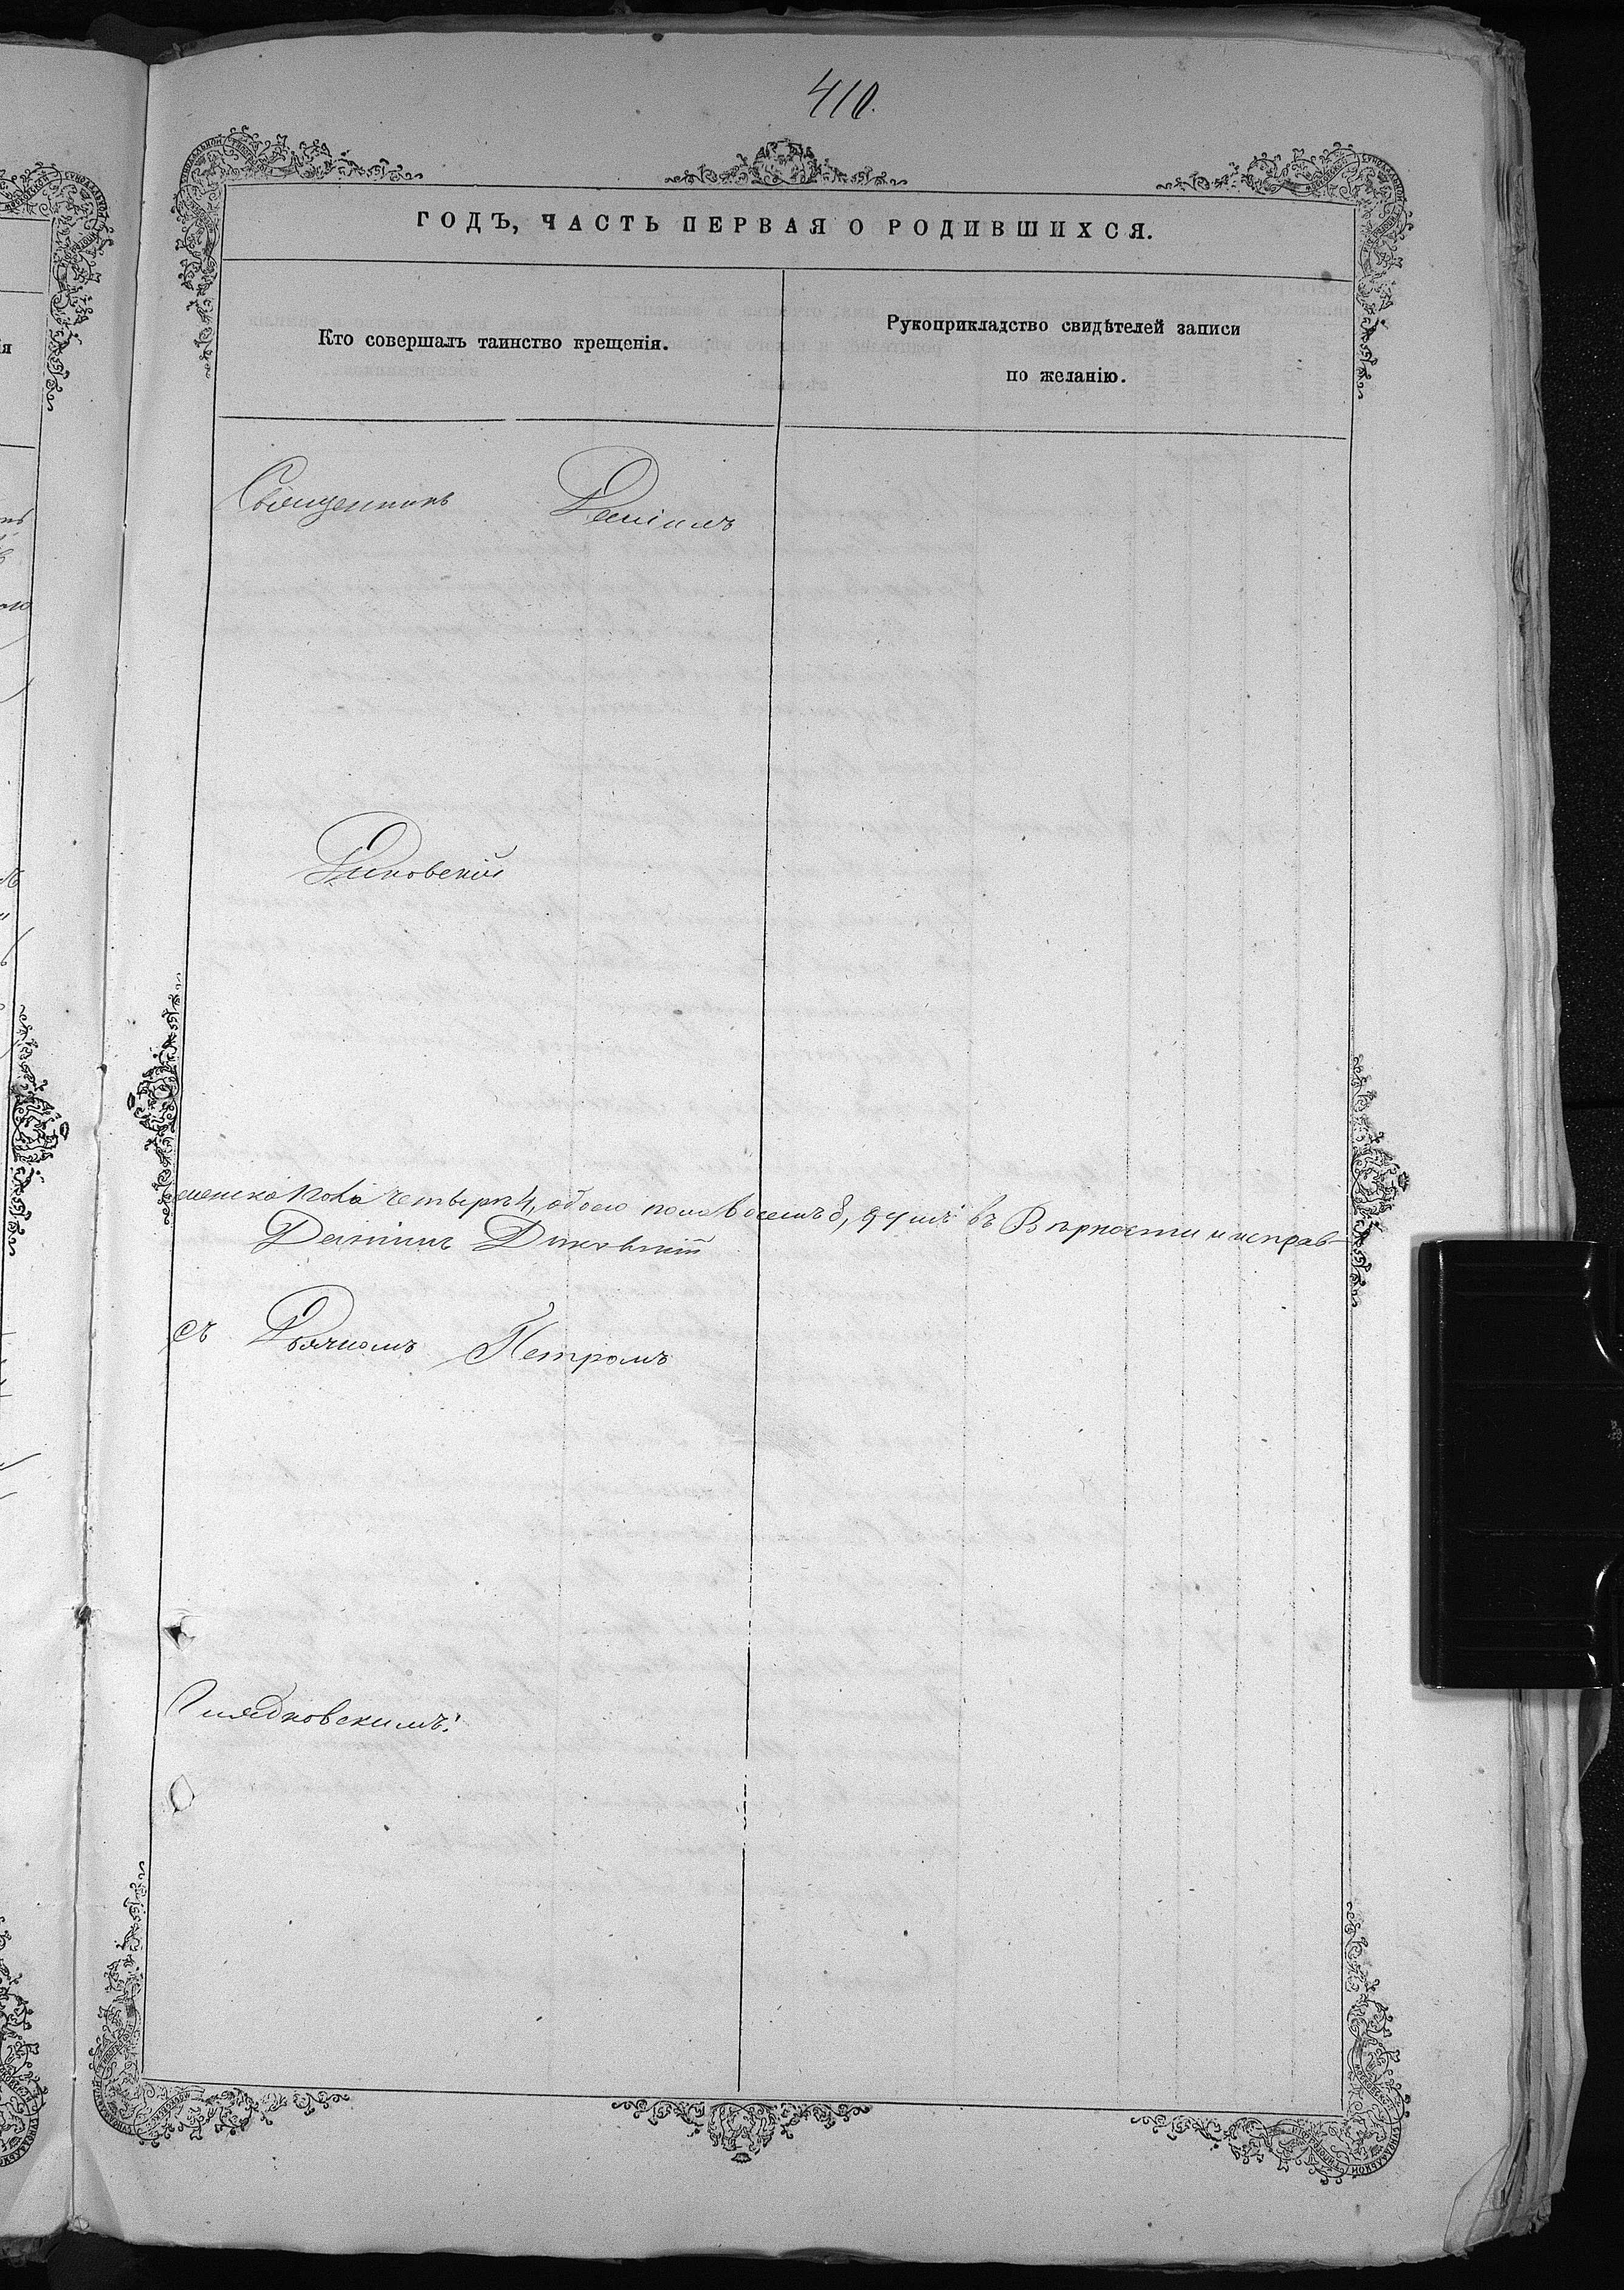 410.
ГОДЪ, ЧАСТЬ ПЕРВАЯ О РОДИВШИХСЯ.
Кто совершалъ таинство крещенія.
Рукоприкладство свидѣтелей записи
по желанію.
Священникъ Даніилъ
Диковскій
женска пола четыре 4, обоего пола восемь 8, душъ въ Вѣрности и исправ-
Даніилъ Диковскій
съ Дьячкомъ Петромъ